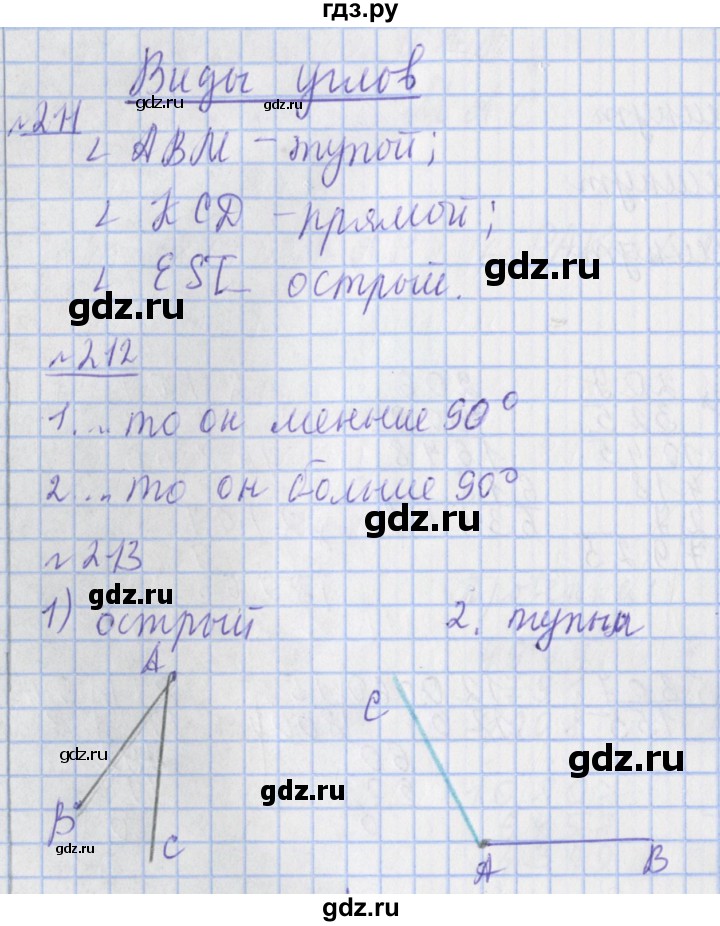 гдз.ру
Виды углов
gdz.ru gdz.ru
№211
∠ ABM – тупой;
∠ KCD – прямой;
gdz.ru
∠ EST острый.
gdz.ru
№212
1... то он меньше 90°
2... то он больше 90°
gdz.ru
№213
gdz.ru
1) острый 2. тупый
A
C
gdz.ru gdz.ru
gdz.ru
B
gdz.ru C
A B
gdz.ru